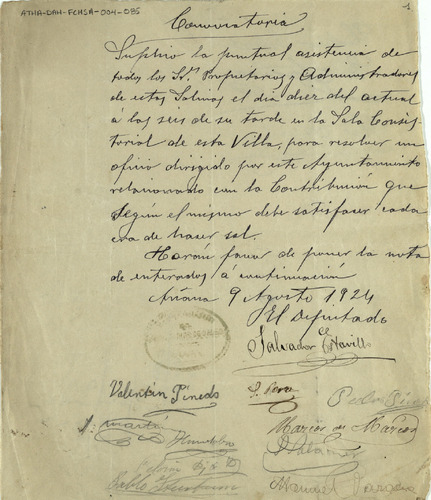 ATHA-DAH-FCMSA-004-095
1
Convocatoria
Suplico la puntual asistencia de
todos los Srs Propietarios y Administradores
de estas Salinas el dia diez del actual
á las seis de su tarde en la Sala Consis
torial de esta Villa, para resolver un
oficio dirigido por este Ayuntamiento
relacionado con la Contribución que
segun el mismo debe satisfacer cada
era de hacer sal.
Harán favor de poner la nota
de enterados á continuacion
Añana 9 Agosto 1924
El Diputado
Salvador
Valentin Pinedo
Pedro
Marcos de Marcos
Pablo
Manuel Vargas